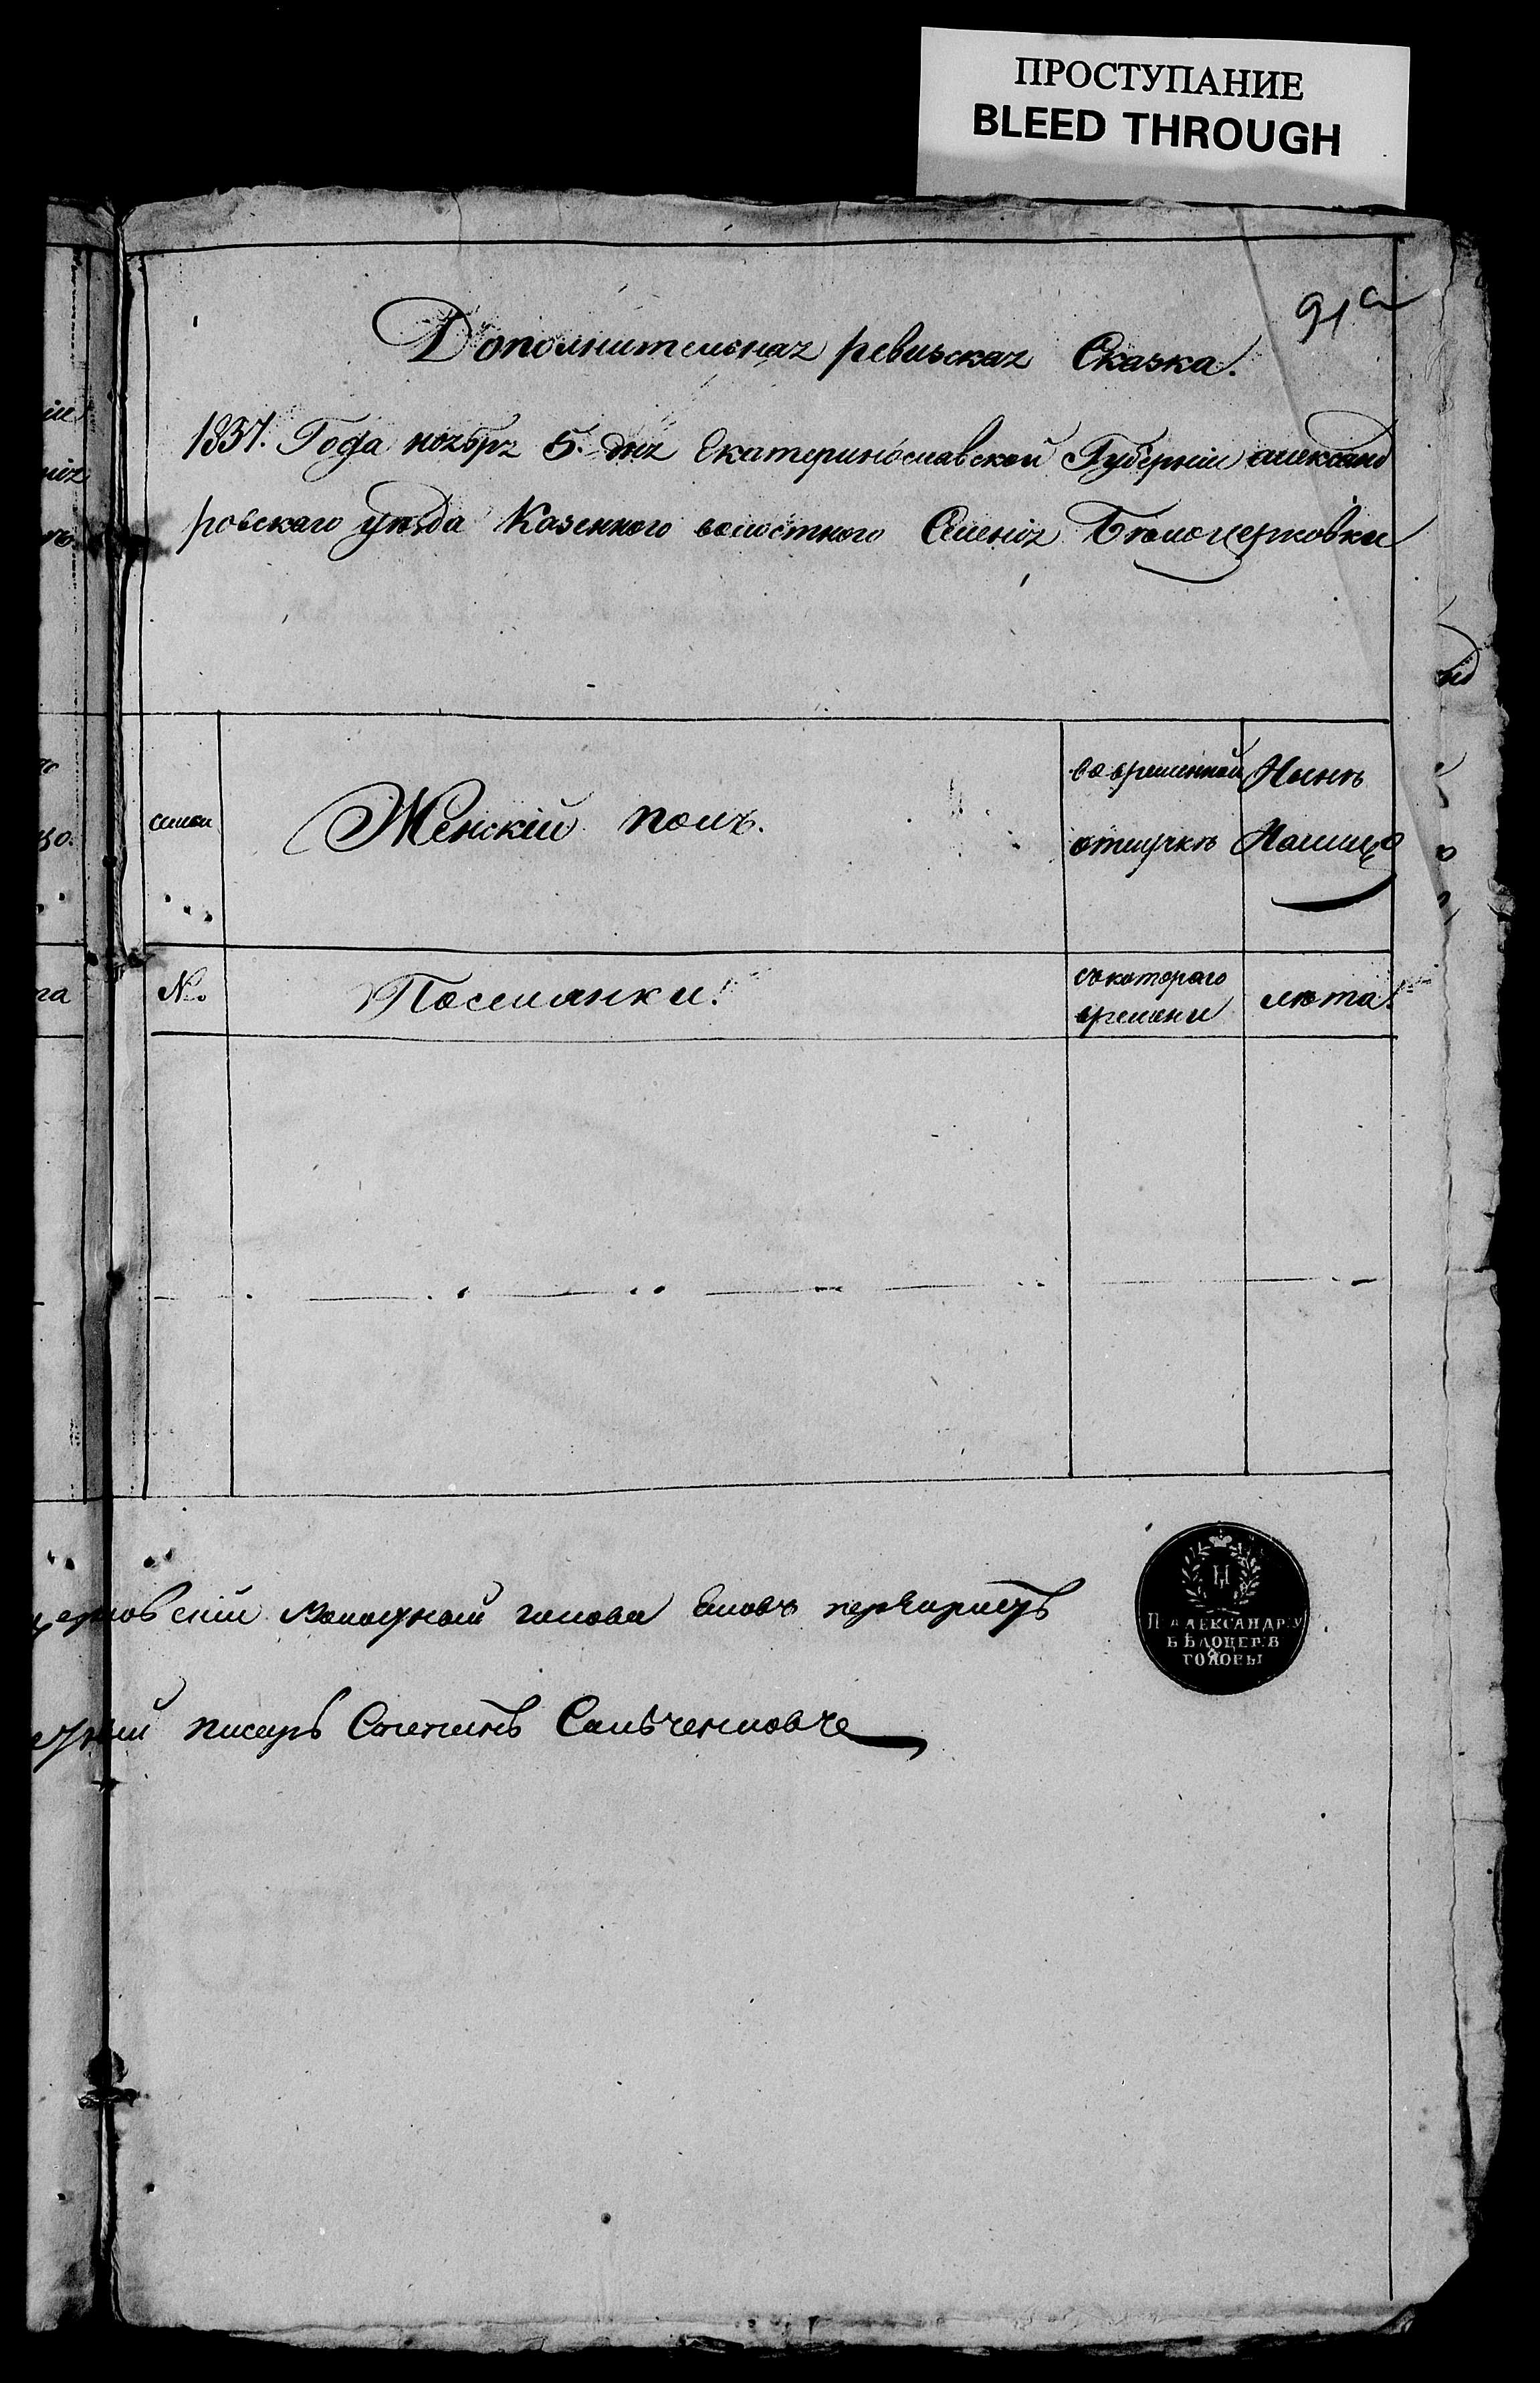 ПРОСТУПАНИЕ
BLEED THROUGH
91а
Дополнительная ревизская Сказка.
1837. Года ноября 5. дня Екатеринославской Губернии александ
ровскаго уезда Казенного волостного Селения Белоцерковки
семьи
Женскій полъ.
во временной
отлучкѣ
Нынѣ
На лицо
№
Поселянки.
съ котораго
времени
лѣта.
церковскій голова
писарь Степанъ
Н
П АЛЕКСАНДР: У
БѢЛОЦЕР: В
ГОЛОВЫ